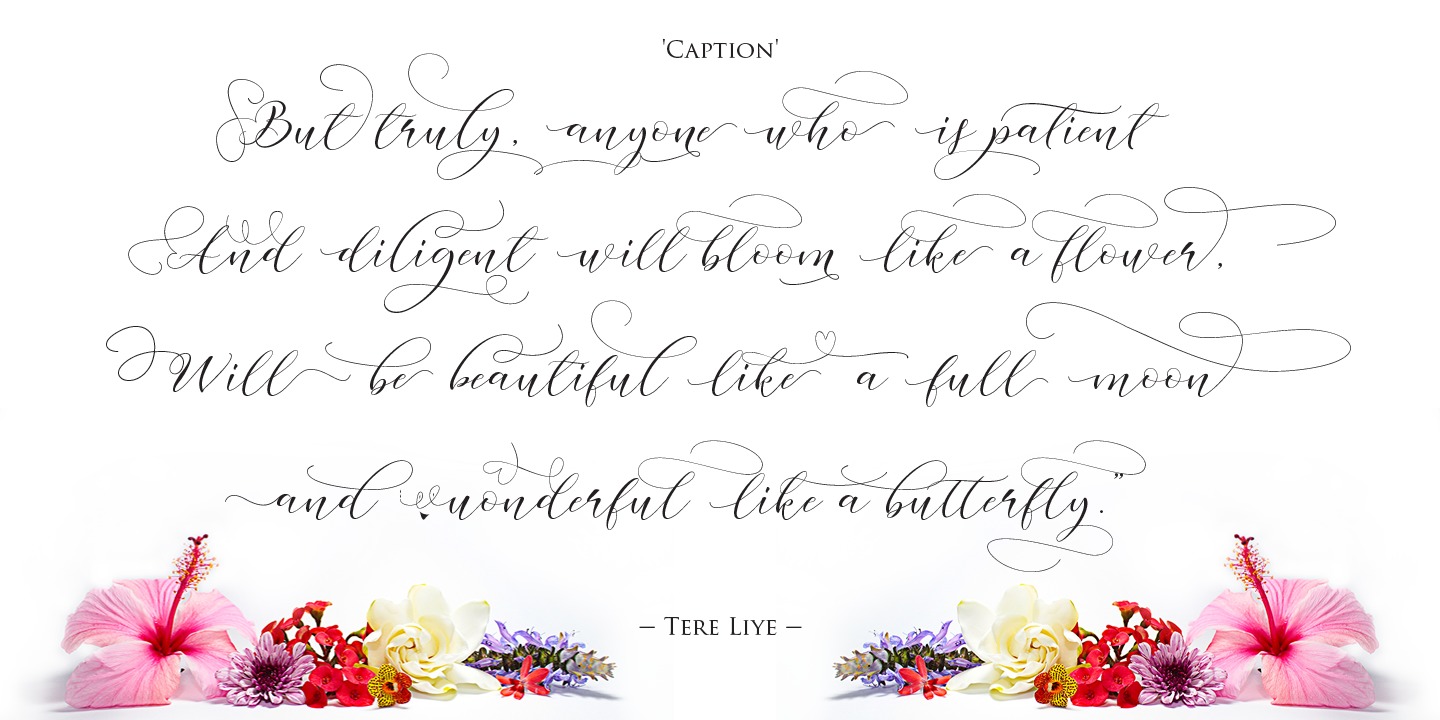 'Caption'
But truly, anyone who is patient
And diligent will bloom like a flower,
Will be beautiful like a full moon
and wonderful like a butterfly.”
– Tere Liye –